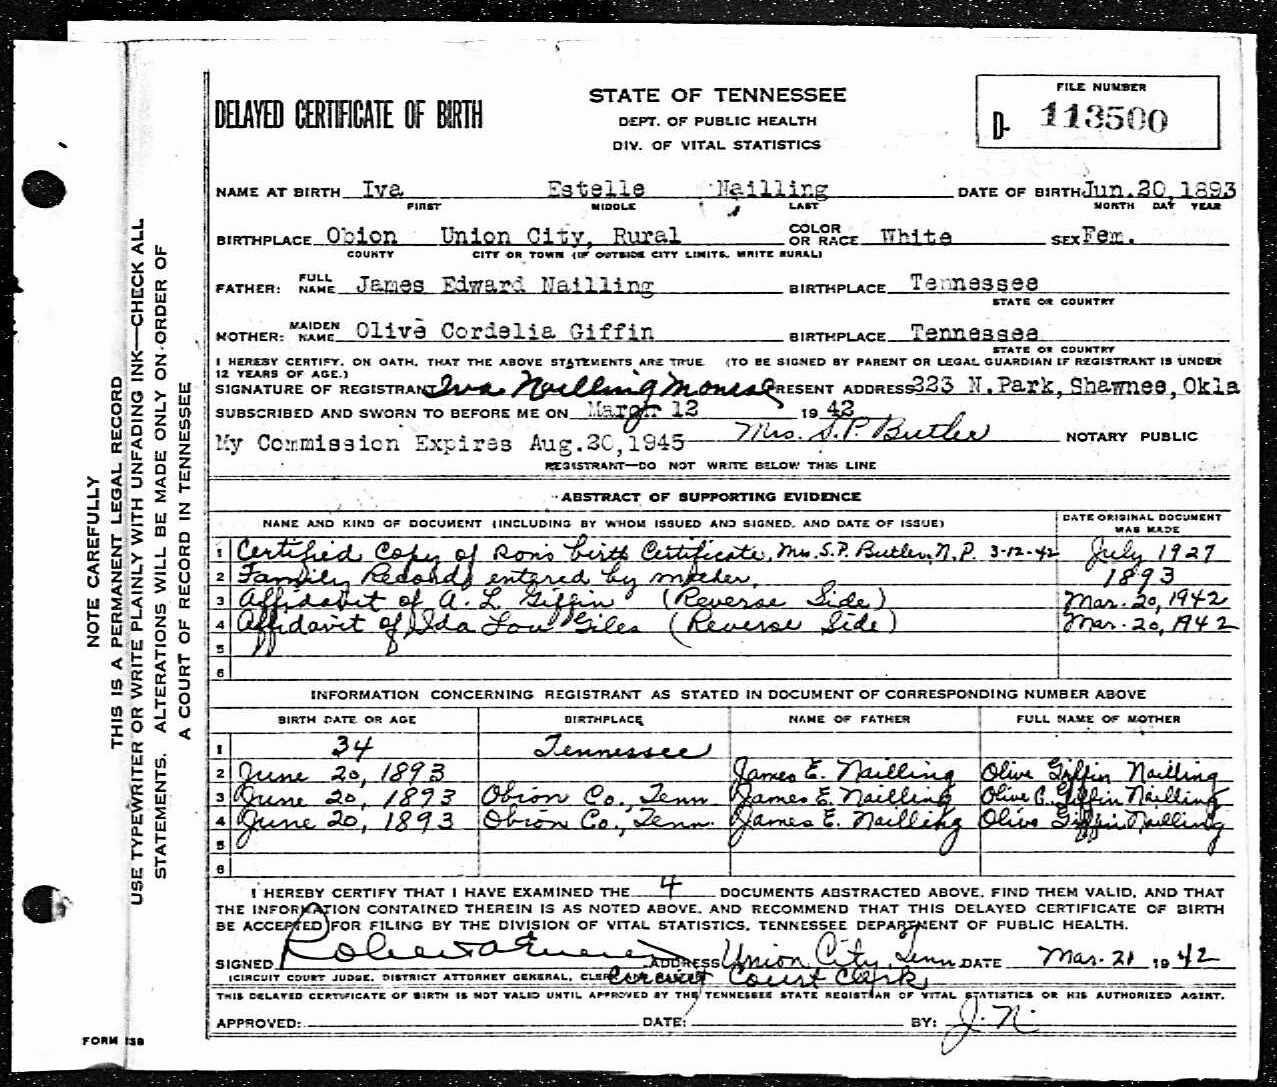 DELAYED CERTIFICATE OF BIRTH
STATE OF TENNESSEE
DEPT. OF PUBLIC HEALTH
DIV. OF VITAL STATISTICS
FILE NUMBER
D- 113500
NAME AT BIRTH Iva Estelle Nailling DATE OF BIRTH Jun.20,1893
FIRST MIDDLE LAST MONTH DAY YEAR
BIRTHPLACE Obion Union City, Rural COLOR OR RACE White SEX Fem.
COUNTY CITY OR TOWN (IF OUTSIDE CITY LIMITS, WRITE RURAL)
FATHER: FULL NAME James Edward Nailling BIRTHPLACE Tennessee
STATE OR COUNTRY
MOTHER: MAIDEN NAME Olive Cordelia Giffin BIRTHPLACE Tennessee
STATE OR COUNTRY
I HEREBY CERTIFY, ON OATH, THAT THE ABOVE STATEMENTS ARE TRUE (TO BE SIGNED BY PARENT OR LEGAL GUARDIAN IF REGISTRANT IS UNDER
12 YEARS OF AGE.)
SIGNATURE OF REGISTRANT Iva Nailling PRESENT ADDRESS 323 N.Park, Shawnee, Okla
SUBSCRIBED AND SWORN TO BEFORE ME ON March 12 19 42
My Commission Expires Aug.20,1945 Mrs. S.P. Butler NOTARY PUBLIC
REGISTRANT—DO NOT WRITE BELOW THIS LINE
ABSTRACT OF SUPPORTING EVIDENCE
NAME AND KIND OF DOCUMENT (INCLUDING BY WHOM ISSUED AND SIGNED, AND DATE OF ISSUE) DATE ORIGINAL DOCUMENT WAS MADE
1 Certified Copy of son's birth Certificate, Mrs. S.P. Butler, N.P. 3-12-42 July 1927
2 Family Records entered by mother. 1893
3 Affidavit of A. L. Giffin (Reverse Side) Mar. 20, 1942
4 Affidavit of Ida Lou Giles (Reverse Side) Mar. 20, 1942
5
6
INFORMATION CONCERNING REGISTRANT AS STATED IN DOCUMENT OF CORRESPONDING NUMBER ABOVE
BIRTH DATE OR AGE BIRTHPLACE NAME OF FATHER FULL NAME OF MOTHER
1 34 Tennessee
2 June 20, 1893 James E. Nailling Olive Giffin Nailling
3 June 20, 1893 Obion Co., Tenn James E. Nailling Olive C. Giffin Nailling
4 June 20, 1893 Obion Co., Tenn. James E. Nailling Olive Giffin Nailling
5
6
I HEREBY CERTIFY THAT I HAVE EXAMINED THE 4 DOCUMENTS ABSTRACTED ABOVE, FIND THEM VALID, AND THAT
THE INFORMATION CONTAINED THEREIN IS AS NOTED ABOVE, AND RECOMMEND THAT THIS DELAYED CERTIFICATE OF BIRTH
BE ACCEPTED FOR FILING BY THE DIVISION OF VITAL STATISTICS, TENNESSEE DEPARTMENT OF PUBLIC HEALTH.
SIGNED ADDRESS Union City, Tenn. DATE Mar. 21 19 42
(CIRCUIT COURT JUDGE, DISTRICT ATTORNEY GENERAL, Circuit Court Clerk
THIS DELAYED CERTIFICATE OF BIRTH IS NOT VALID UNTIL APPROVED BY THE TENNESSEE STATE REGISTRAR OF VITAL STATISTICS OR HIS AUTHORIZED AGENT.
APPROVED: DATE: BY: J. N.
NOTE CAREFULLY
THIS IS A PERMANENT LEGAL RECORD
USE TYPEWRITER OR WRITE PLAINLY WITH UNFADING INK—CHECK ALL
STATEMENTS. ALTERATIONS WILL BE MADE ONLY ON ORDER OF
A COURT OF RECORD IN TENNESSEE
FORM 13B